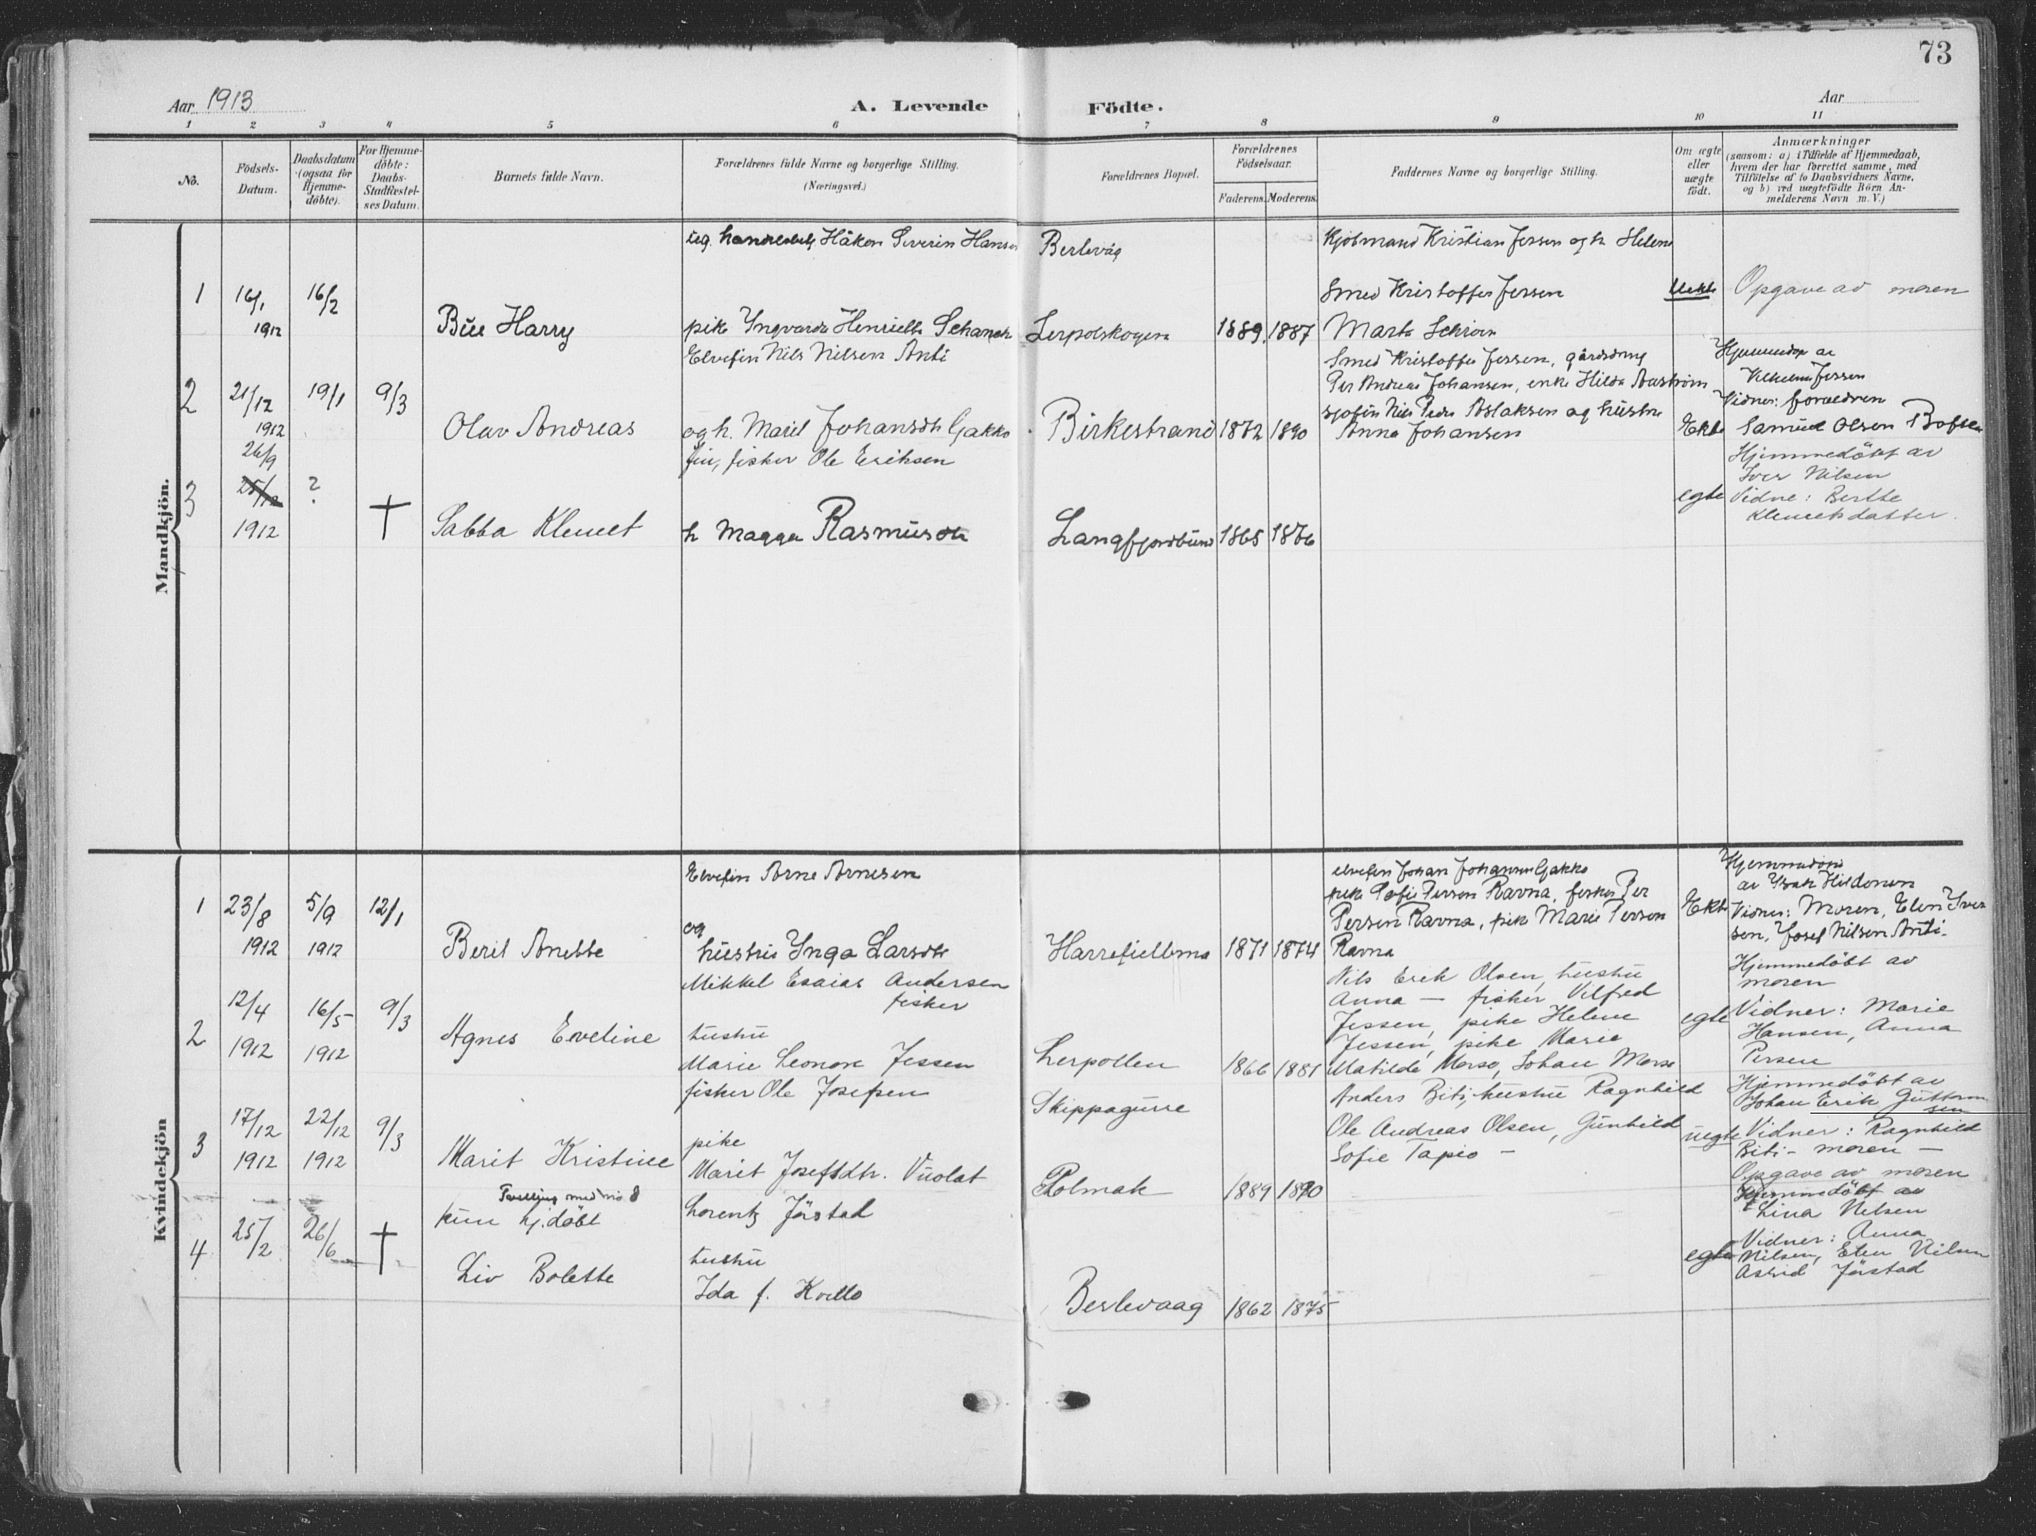 73
Aar 1913
A. Levende Födte.
Aar
1 2 3 4 5 6 7 8 9 10 11
No.
Födsels-
Datum.
Daabsdatum
(ogsaa for
Hjemme-
döbte).
For Hjemme-
döbte:
Daabs-
Stadfæstel-
ses Datum.
Barnets fulde Navn.
Forældrenes fulde Navne og borgerlige Stilling.
(Næringsvei.)
Forældrenes Bopæl.
Forældrenes
Födselsaar.
Faderens. Moderens.
Faddernes Navne og borgerlige Stilling.
Om ægte
eller
uægte
födt.
Anmærkninger
(saasom: a) i Tilfælde af Hjemmedaab,
hvem der har forrettet samme, med
Tilföielse af to Daabsvidners Navne,
og b) ved uægtefödte Börn An-
melderens Navn m. V.)
Mandkjön.
1
16/1
1912
16/2
Büe Harry
ug. Håkon Severin Hansen
pike Yngvarda Henriette Schanche
Berlevåg
Lerpolskogen
1889. 1887
Kjøbmand Kristian Jessen og h Helene
Smed Kristoffer Jessen
Marta
Uekte
Opgave av moren
2
21/12
1912
19/1
9/3
Olav Andreas
Elvefin Nils Nilsen Anti
og h. Marit Johansdtr Gakko
Birkestrand
1872 1890
Smed Kristoffer Jessen, gårdbrug
Per Andreas Johansen, enke Hilda Aaström
sjøfin Nils Peder Aslaksen og hustru
Anna Johansen
Ekte
Hjemmedøp av
Vilhelm Jessen
Vidner: forældren
Samuel Olsen
3
26/9
25/12
1912
?
†
Sabba Klemet
fin, fisker Ole Eriksen
h Magga Rasmusdtr
Langfjordbund
1865 1876
egte
Hjemmedöbt av
Iver Nilsen
Vidne: Berthe
Klemetsdatter.
Kvindekjön
1
23/8
1912
5/9
1912
12/1
Berit Anette
Elvefin Arne Arnesen
og
hustru Inga Larsdtr
Harrefjellnes
1871 1874
elvefin Johan Johannesen Gakko
pike Sofie Persen Ravna, fisker Per
Persen Ravna, pike Marie Persen
Ravna
Ekte
Hjemmedøpt
av Isak Hildonen
Vidner: Moren, Elen Iver
sen, Josef Nilsen Anti.
2
12/4
1912
16/5
1912
9/3
Agnes Eveline
Mikkel Esaias Andersen
fisker
hustru
Marie Leonore Jessen
Lerpollen
1866 1881
Nils Erik Olsen, hustru
Anna — fisker Vilfred
Jessen, pike Helene
Jessen, pike Marie
Matilde Morso, Johan Morso
egte
Hjemmedöbt av
moren
Vidner: Marie
Hansen, Anna
Persen
3
17/12
1912
22/12
1912
9/3
Marit Kristine
fisker Ole Josefsen
pike
Marit Josefsdtr. Vuolat
Skippagurre
Polmak
1889 1890
Anders Biti, hustru Ragnhild
Ole Andreas Olsen, Gunhild
Sofie Tapio —
uegte
Hjemmedöbt av
Johan Erik Guttorm
sen
Vidner: Ragnhild
Biti — moren —
Opgave av moren
4
25/2
26/6
†
Tvelling med no 8
kun hj.döbt
Liv Bolette
Lorentz Jörstad
hustru
Ida f. Koello
Berlevaag
1862 1875
egte
Hjemmedöbt av
Lina Nilsen
Vidner: Anna
Nilsen, Elen Nilsen
Astrid Jörstad